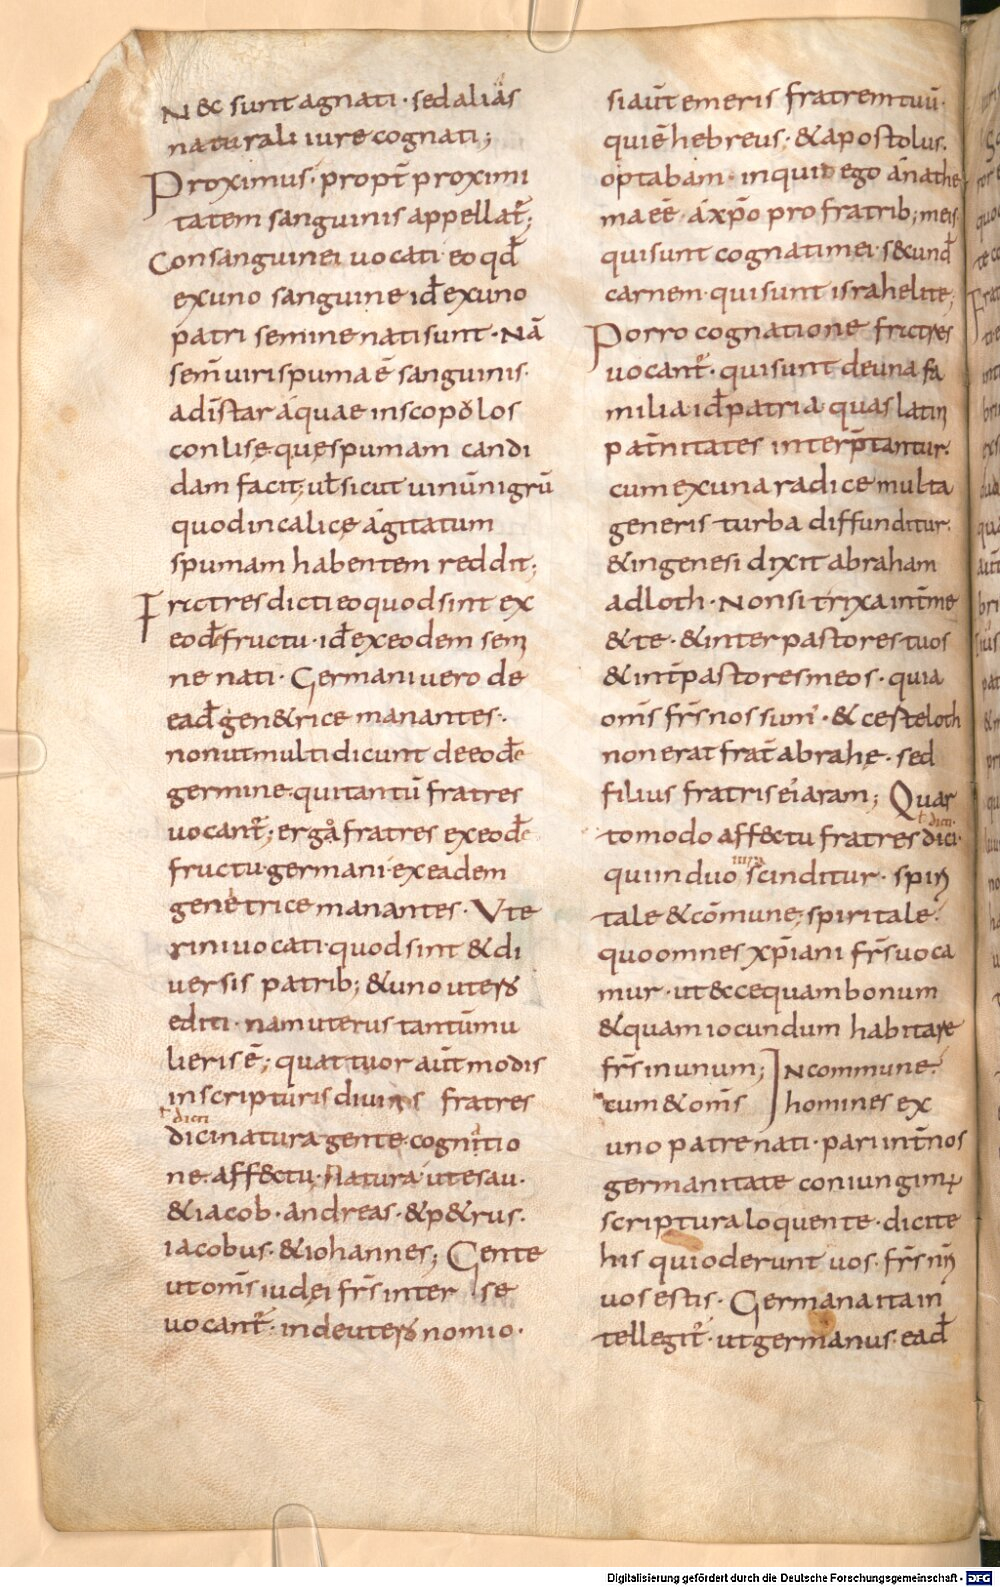 N& sunt agnati · sed alias
naturali iure cognati;
Proximus · propt̄ proximi
tatem sanguinis appellat̄;
Consanguinei uocati eo qđ
ex uno sanguine · iđ ex uno
patri semine nati sunt · Nā
sem̄ uiri spuma ē sanguinis ·
ad istar aquae in scopolos
conlisę quę spumam candi
dam facit; uł sicut uinū nigrū
quod in calice agitatum
spumam habentem reddit;
Frɑtres dicti eo quod sint ex
eođ fructu · iđ ex eodem sem
ne nati · Germani uero de
eađ gen&rice manantes ·
non ut multi dicunt de eođ
germine · qui tantū fratres
uocant̄ · ergo fratres ex eođ
fructu · germani ex eadem
genetrice manantes · Vte
rini uocati · quod sint & di
uersis patrib; & uno utero
editi · nam uterus tantū mu
lieris ē; quattuor aut̄ modis
in scripturis diuinis fratres
ł dicti
dici natura gente cognatio
ne · affectu · Natura · ut esau ·
& iacob · andreas · & p&rus ·
iacobus · & iohannes; Gente
ut om̄s iudęi fr̄s inter se
uocant̄ · in deuteronomio ·
si aut̄ emeris fratrem tuū ·
qui ē hebreus · & apostolus ·
optabam · inquid ego anathe
ma eē · a xp̄o pro fratrib; meis
qui sunt cognati mei · s&cunđ
carnem · qui sunt israhelite;
Porro cognatione frɑtres
uocant̄ · qui sunt de una fa
milia · iđ patria · quas latin
pat̄nitates interp̄tantur ·
cum ex una radice multa
generis turba diffunditur ·
& in genesi dixit abraham
ad loth · Non sit rixa int̄ me
& te · & inter pastores tuos
& int̄ pastores meos · quia
om̄s fr̄s nos sum̄ · & certe loth
non erat frat̄ abrahę · sed
filius fratris ei' aram; Quar
ł dicti
to modo affectu fratres dici ·
qui in duo scinditur · spiri
tale & cōmune; spiritale ·
quo omnes xp̄iani fr̄s uoca
mur · ut & ecce quam bonum
& quam iocundum habitare
fr̄s in unum; In commune ·
cum & om̄s homines ex
uno patre nati · pari int̄ nos
germanitate coniungimur
scriptura loquente · dicite
his qui oderunt uos · fr̄s nr̄i
uos estis · Germana ita in
tellegit̄ · ut germanus · eađ